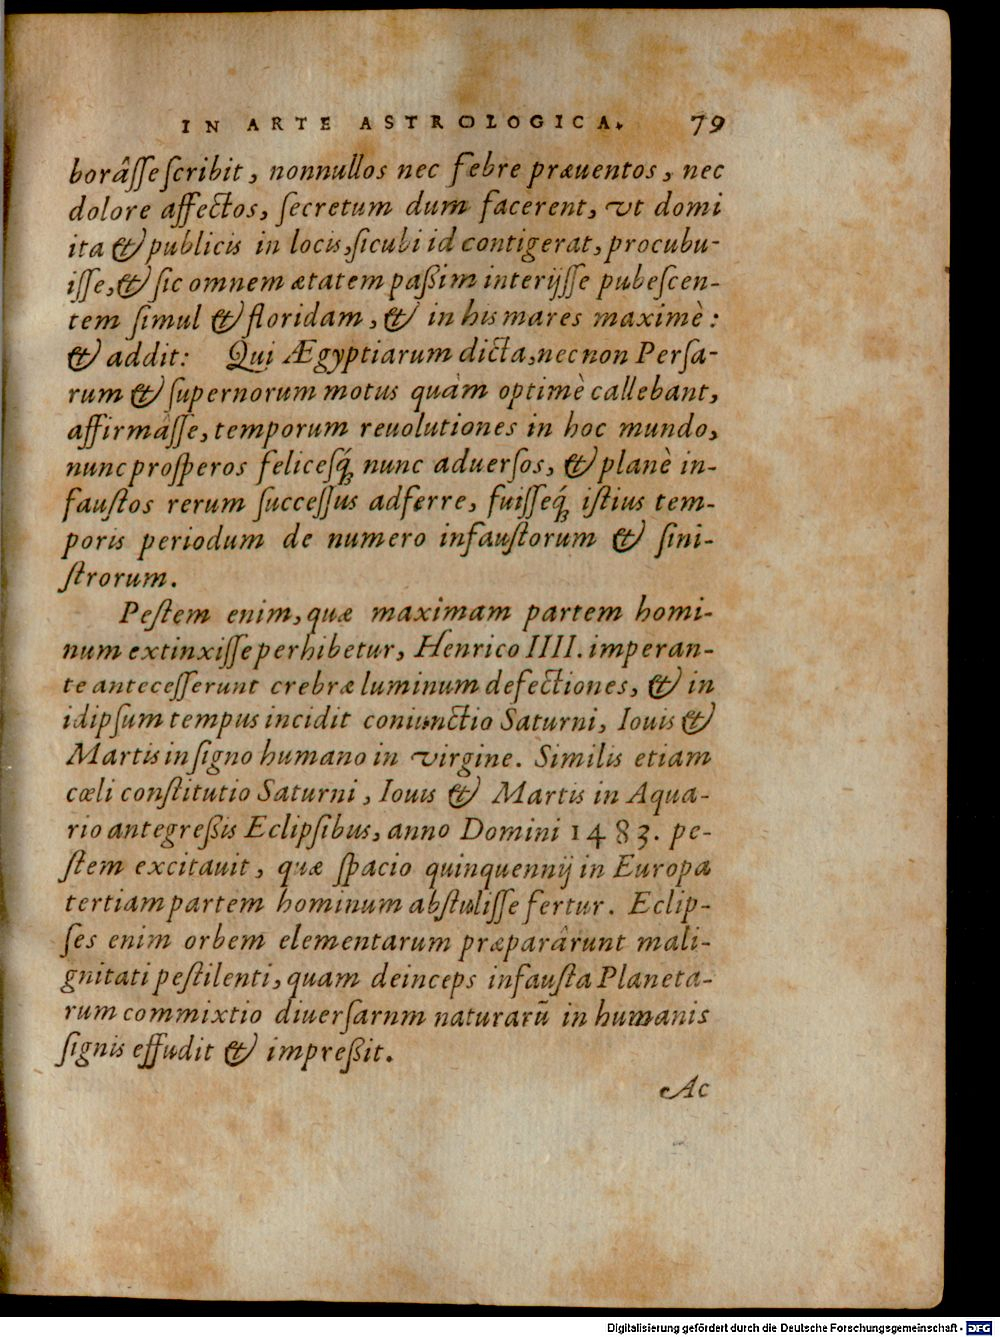 IN ARTE ASTROLOGICA. 79
borâsse scribit, nonnullos nec febre præuentos, nec
dolore affectos, secretum dum facerent, vt domi
ita & publicis in locis, sicubi id contigerat, procubu-
isse, & sic omnem ætatem paßim interijsse pubescen-
tem simul & floridam, & in his mares maximè:
& addit: Qui Ægyptiarum dicta, necnon Persa-
rum & supernorum motus quàm optimè callebant,
affirmâsse, temporum reuolutiones in hoc mundo,
nunc prosperos felicesq́; nunc aduersos, & planè in-
faustos rerum successus adferre, fuisseq́; istius tem-
poris periodum de numero infaustorum & sini-
strorum.
Pestem enim, quæ maximam partem homi-
num extinxisse perhibetur, Henrico IIII. imperan-
te antecesserunt crebræ luminum defectiones, & in
idipsum tempus incidit coniunctio Saturni, Iouis &
Martis in signo humano in virgine. Similis etiam
cœli constitutio Saturni, Iouis & Martis in Aqua-
rio antegreßis Eclipsibus, anno Domini 1483. pe-
stem excitauit, quæ spacio quinquennij in Europa
tertiam partem hominum abstulisse fertur. Eclip-
ses enim orbem elementarum præparârunt mali-
gnitati pestilenti, quam deinceps infausta Planeta-
rum commixtio diuersarnm naturarũ in humanis
signis effudit & impreßit.
Ac
Digitalisierung gefördert durch die Deutsche Forschungsgemeinschaft - DFG